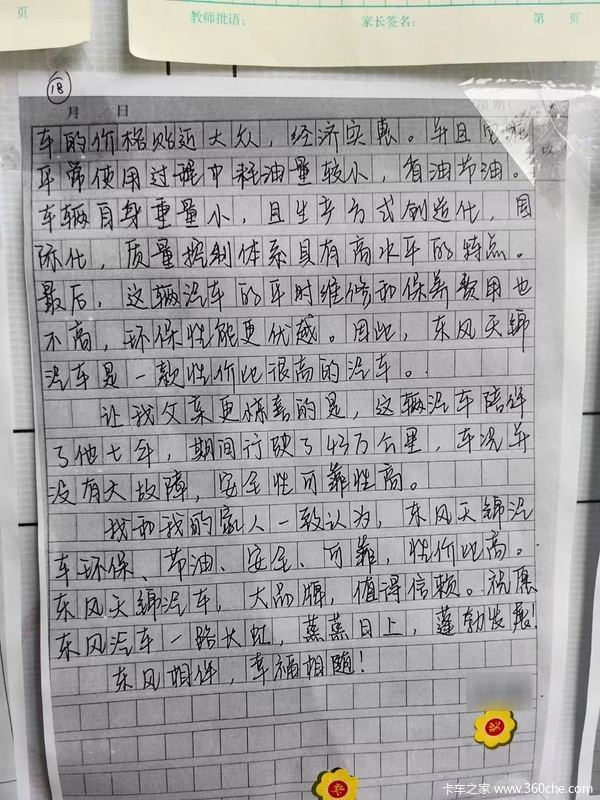 页
教师批语:
家长签名:
第 页
18
月 日
星期
车的价格贴近大众,经济实惠。并且它在
平常使用过程中耗油量较小,省油节油。
车辆自身重量小,且生产方式创造化,国
际化,质量控制体系具有高水平的特点。
最后,这辆汽车的平时维修和保养费用也
不高,环保性能更优越。因此,东风天锦
汽车是一款性价比很高的汽车。
让我父亲更惊喜的是,这辆汽车陪伴
了他七年,期间行驶了43万公里,车况并
没有大故障,安全性可靠性高。
我和我的家人一致认为,东风天锦汽
车环保、节油、安全、可靠,性价比高。
东风天锦汽车,大品牌,值得信赖。祝愿
东风汽车一路长虹,蒸蒸日上,蓬勃发展!
东风相伴,幸福相随!
卡车之家 www.360che.com